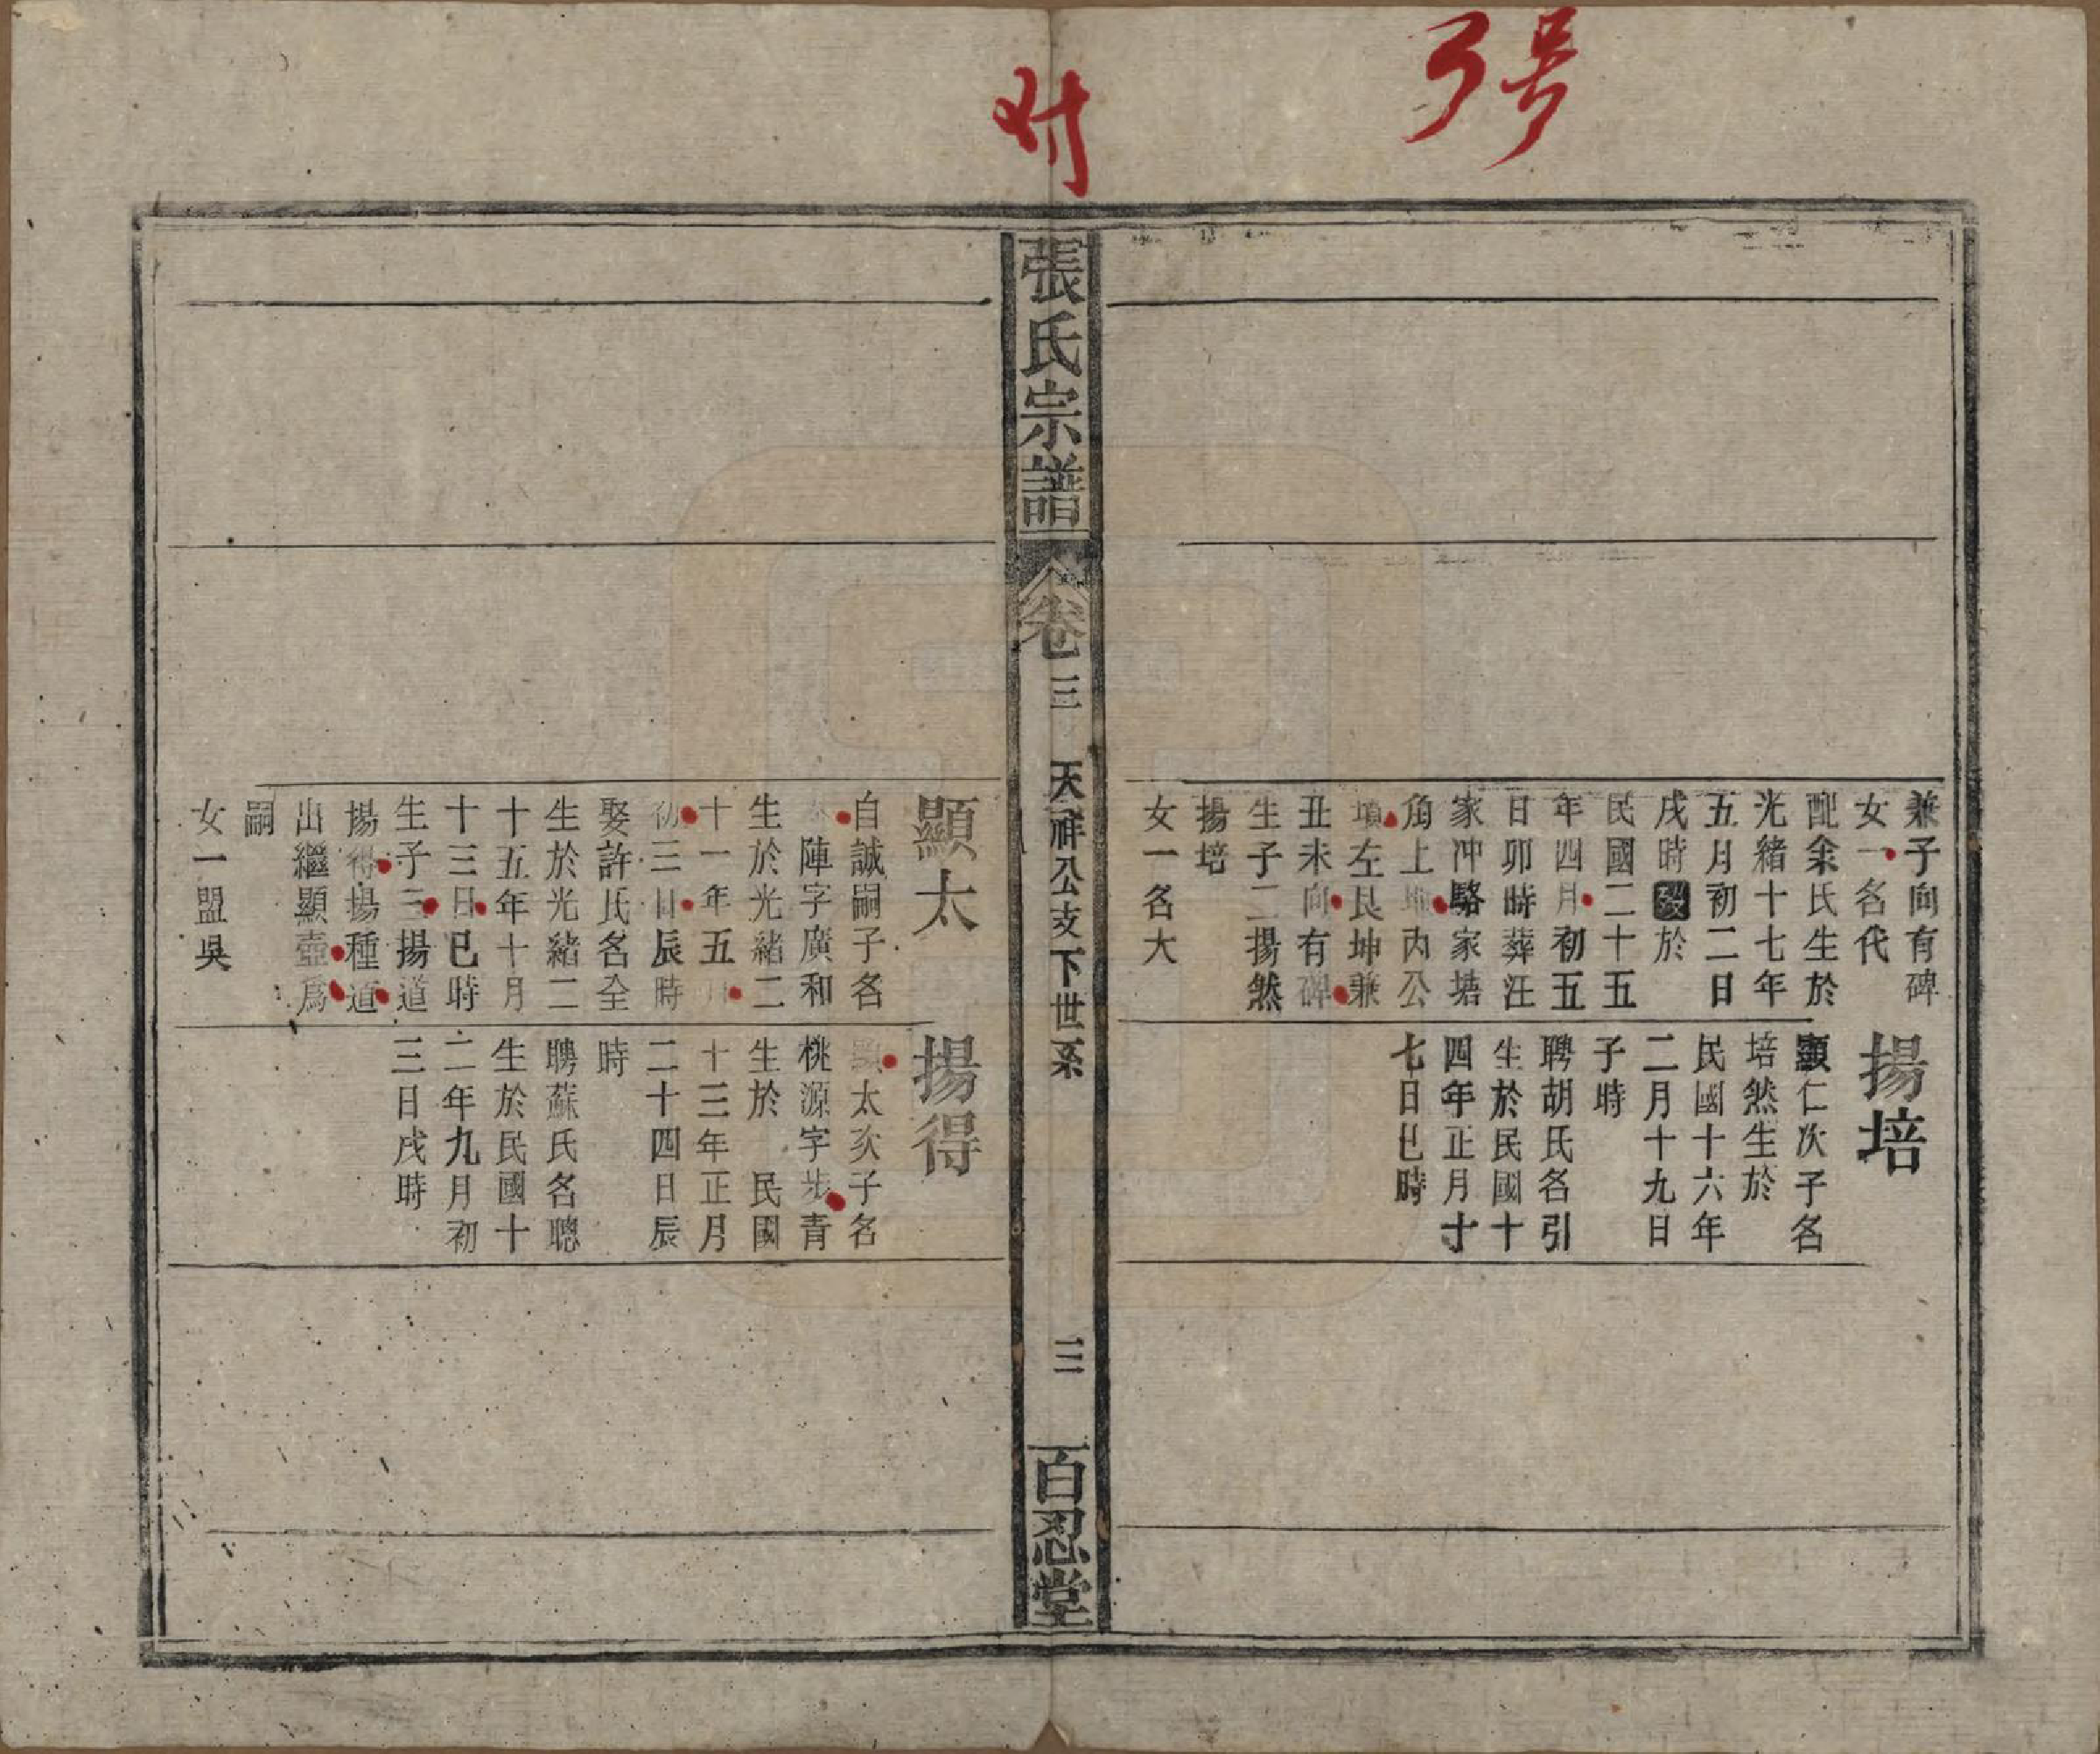 弓号
附
兼子向有碑
女一名代
配余氏生於
光緒十七年
五月初二日
戌時歿於
民國二十五
年四月初五
日卯時葬汪
家冲駱家塘
角上地內公
墳左艮坤兼
丑未向有碑
生子二揚然
揚培
女一名大
揚培
顯仁次子名
培然生於
民國十六年
二月十九日
子時
聘胡氏名引
生於民國十
四年正月寸
七日巳時
張氏宗譜
卷三
天祥公支下世系
三
百忍堂
顯太
自誠嗣子名
陣字廣和
生於光緒二
十一年五月
初三日辰時
娶許氏名全
生於光緒二
十五年十月
十三日巳時
生子三揚道
揚得揚種道
出繼顯壺爲
嗣
女一盟吳
揚得
顯太次子名
桃源字步青
生於 民國
十三年正月
二十四日辰
時
聘蘇氏名聰
生於民國十
二年九月初
三日戌時